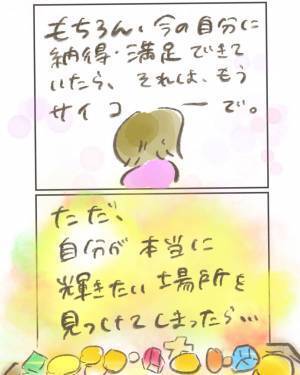 もちろん、今の自分に
納得・満足できて
いたら、それは、もう
サイコーーで。
ただ、
自分が本当に
輝きたい場所を
見つけてしまったら…